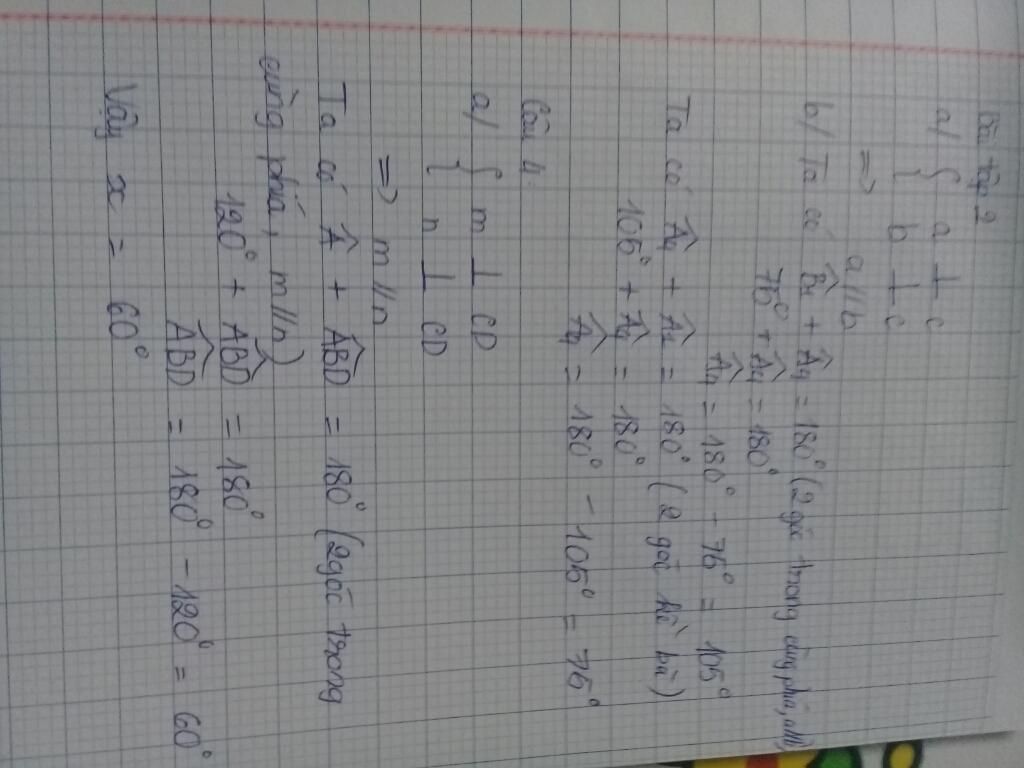 Bài tập 2
a/ { a ⊥ c
b ⊥ c
=> a//b
b/ Ta có B̂₁ + Â₄ = 180° (2 góc trong cùng phía, a//b)
75° + Â₄ = 180°
Â₄ = 180° - 75° = 105°
Ta có Â₄ + Â₁ = 180° (2 góc kề bù)
105° + Â₁ = 180°
Â₁ = 180° - 105° = 75°
Câu 4
a/ { m ⊥ CD
n ⊥ CD
=> m//n
Ta có Â + ABD̂ = 180° (2góc trong
cùng phía, m//n)
120° + ABD̂ = 180°
ABD̂ = 180° - 120° = 60°
Vậy x = 60°